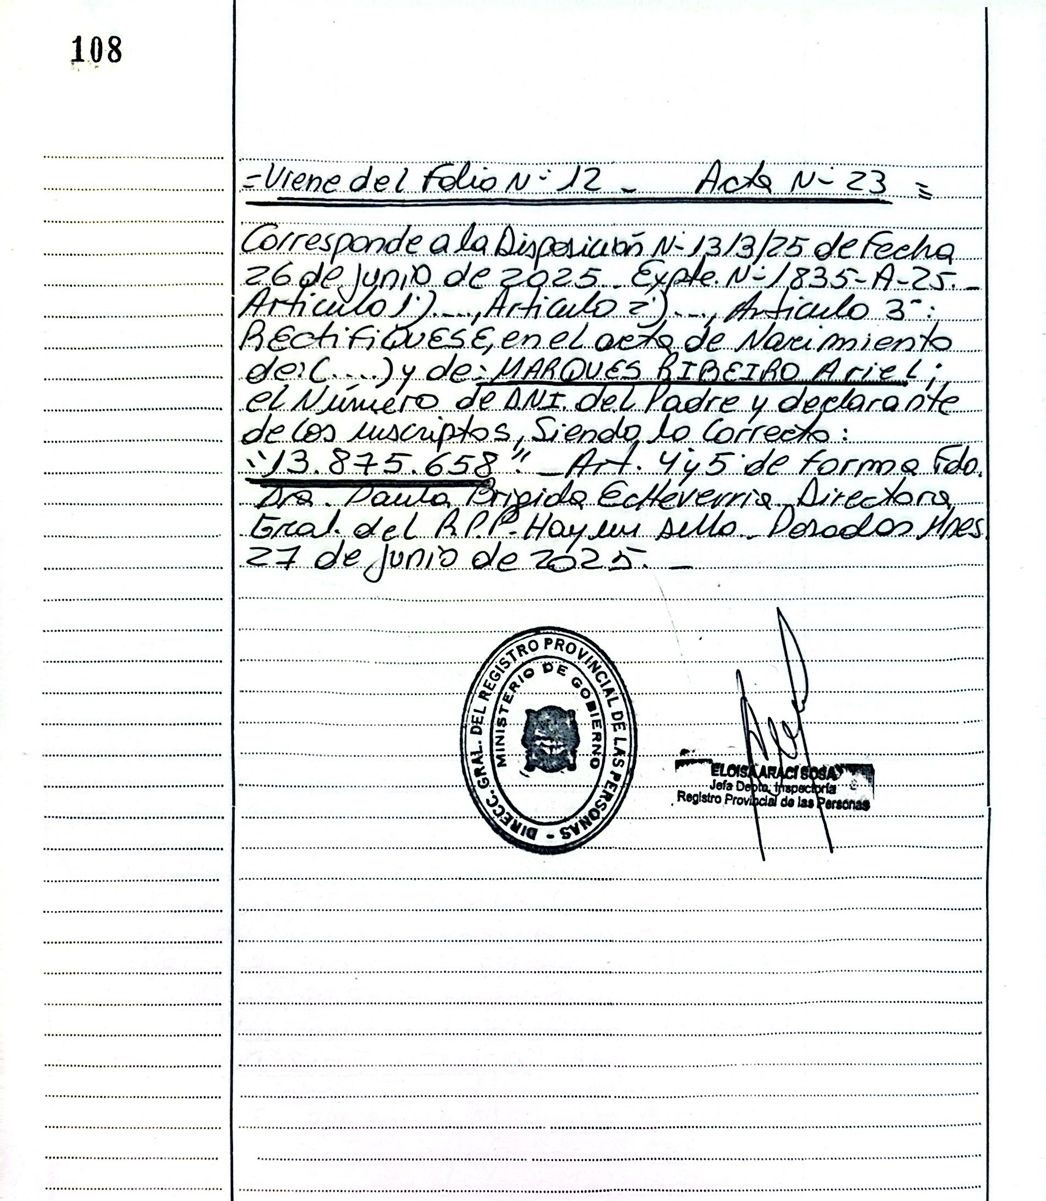 108
=Viene del Folio N° 12 - Acta N° 23 =
Corresponde a la Disposición N° 1313/25 de Fecha
26 de Junio de 2025. Expte. N° 1835-A-25.-
Artículo 1°)...., Artículo 2°)...., Artículo 3°:
RECTIFÍQUESE, en el acta de Nacimiento
de: (....) y de: MARQUES RIBEIRO Ariel;
el Número de DNI. del Padre y declarante
de los inscriptos, Siendo lo Correcto:
"13.875.658". Art. 4 y 5 de forma Fdo.
Dra. Paula Brigida Echeverria Directora
Gral. del R.P.P. Hay un sello. Posadas Mnes.
27 de Junio de 2025. -
DIRECC. GRAL. DEL REGISTRO PROVINCIAL DE LAS PERSONAS -
MINISTERIO DE GOBIERNO
ELOISA ARACI SOSA
Jefa Depto. Inspectoría
Registro Provincial de las Personas